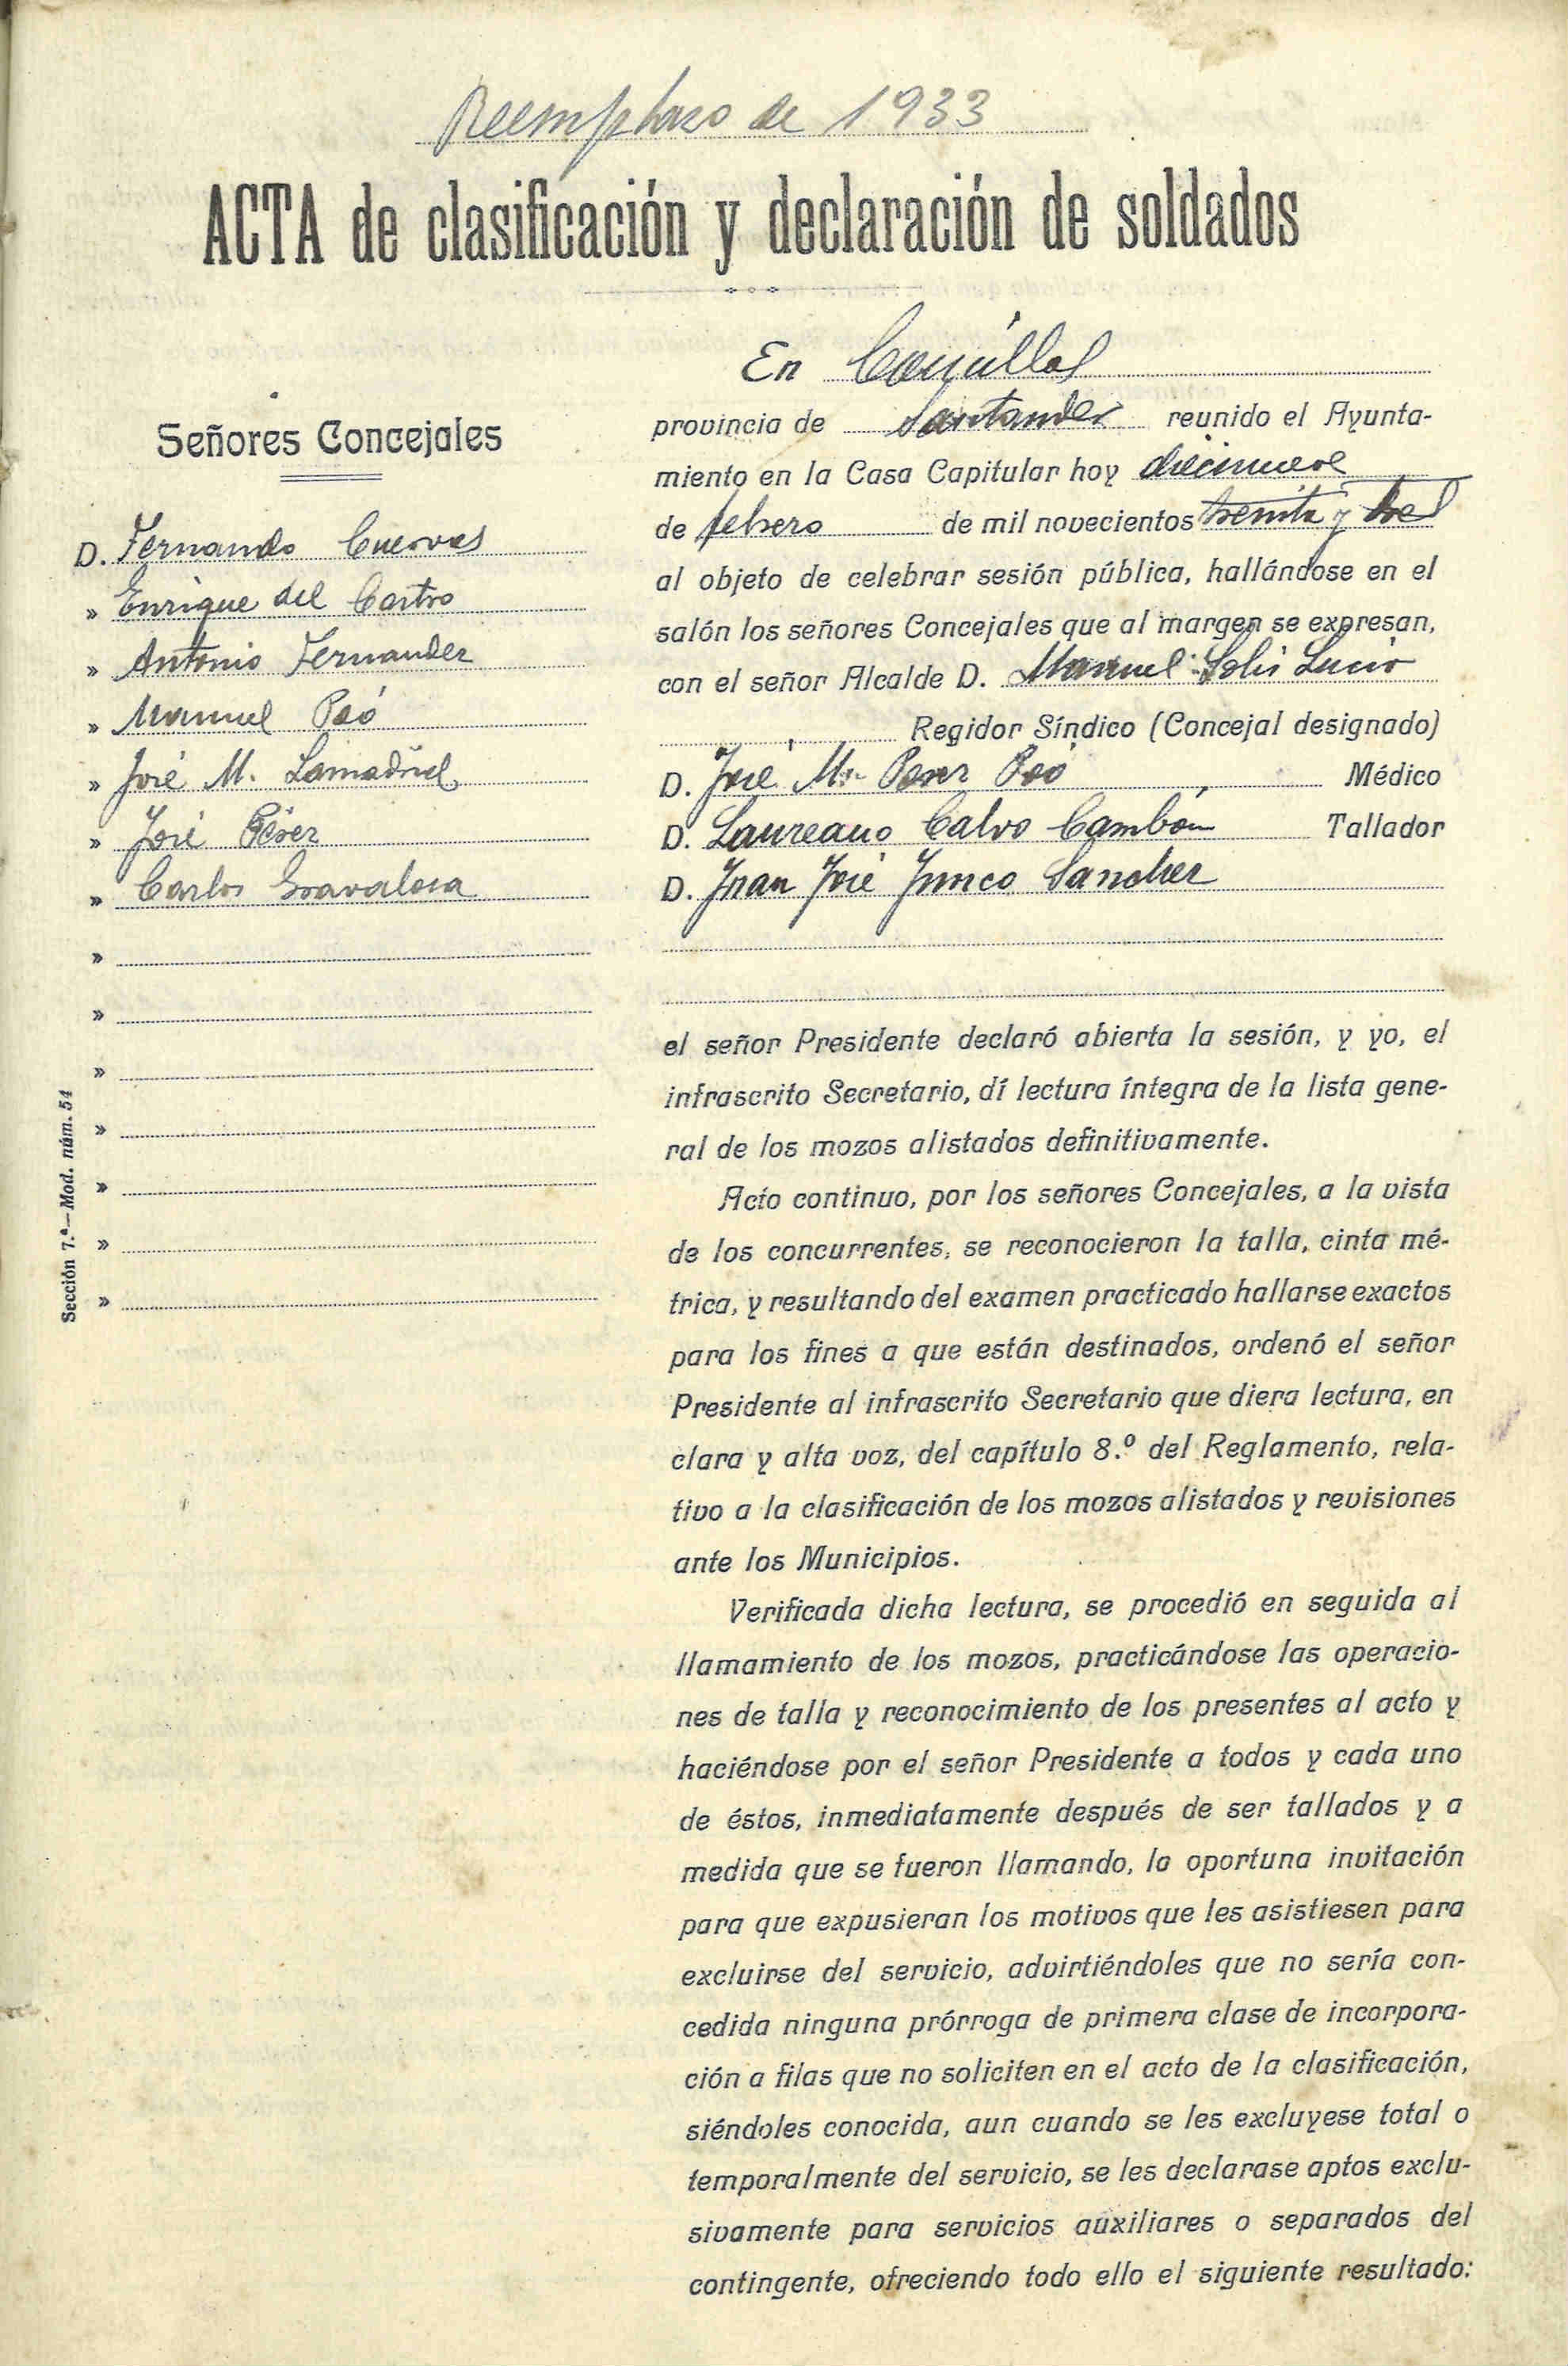 Reemplazo de 1933
ACTA de clasificación y declaración de soldados
Señores Concejales
D. Fernando Cuevas
» Enrique del Castro
» Antonio Fernandez
» Manuel Peó
» José M. Lamadrid
» José Pérez
» Carlos
»
»
»
»
»
»
»
Sección 7.ª—Mod. núm. 54
En Comillas
provincia de Santander reunido el Ayunta-
miento en la Casa Capitular hoy diecinueve
de febrero de mil novecientos treinta y tres
al objeto de celebrar sesión pública, hallándose en el
salón los señores Concejales que al margen se expresan,
con el señor Alcalde D. Manuel Solis Lucio
Regidor Síndico (Concejal designado)
D. José Mª Perez Peó Médico
D. Laureano Calvo Cambón Tallador
D. Juan José Junco Sanchez
el señor Presidente declaró abierta la sesión, y yo, el
infrascrito Secretario, dí lectura íntegra de la lista gene-
ral de los mozos alistados definitivamente.
Acto continuo, por los señores Concejales, a la vista
de los concurrentes, se reconocieron la talla, cinta mé-
trica, y resultando del examen practicado hallarse exactos
para los fines a que están destinados, ordenó el señor
Presidente al infrascrito Secretario que diera lectura, en
clara y alta voz, del capítulo 8.º del Reglamento, rela-
tivo a la clasificación de los mozos alistados y revisiones
ante los Municipios.
Verificada dicha lectura, se procedió en seguida al
llamamiento de los mozos, practicándose las operacio-
nes de talla y reconocimiento de los presentes al acto y
haciéndose por el señor Presidente a todos y cada uno
de éstos, inmediatamente después de ser tallados y a
medida que se fueron llamando, la oportuna invitación
para que expusieran los motivos que les asistiesen para
excluirse del servicio, advirtiéndoles que no sería con-
cedida ninguna prórroga de primera clase de incorpora-
ción a filas que no soliciten en el acto de la clasificación,
siéndoles conocida, aun cuando se les excluyese total o
temporalmente del servicio, se les declarase aptos exclu-
sivamente para servicios auxiliares o separados del
contingente, ofreciendo todo ello el siguiente resultado: